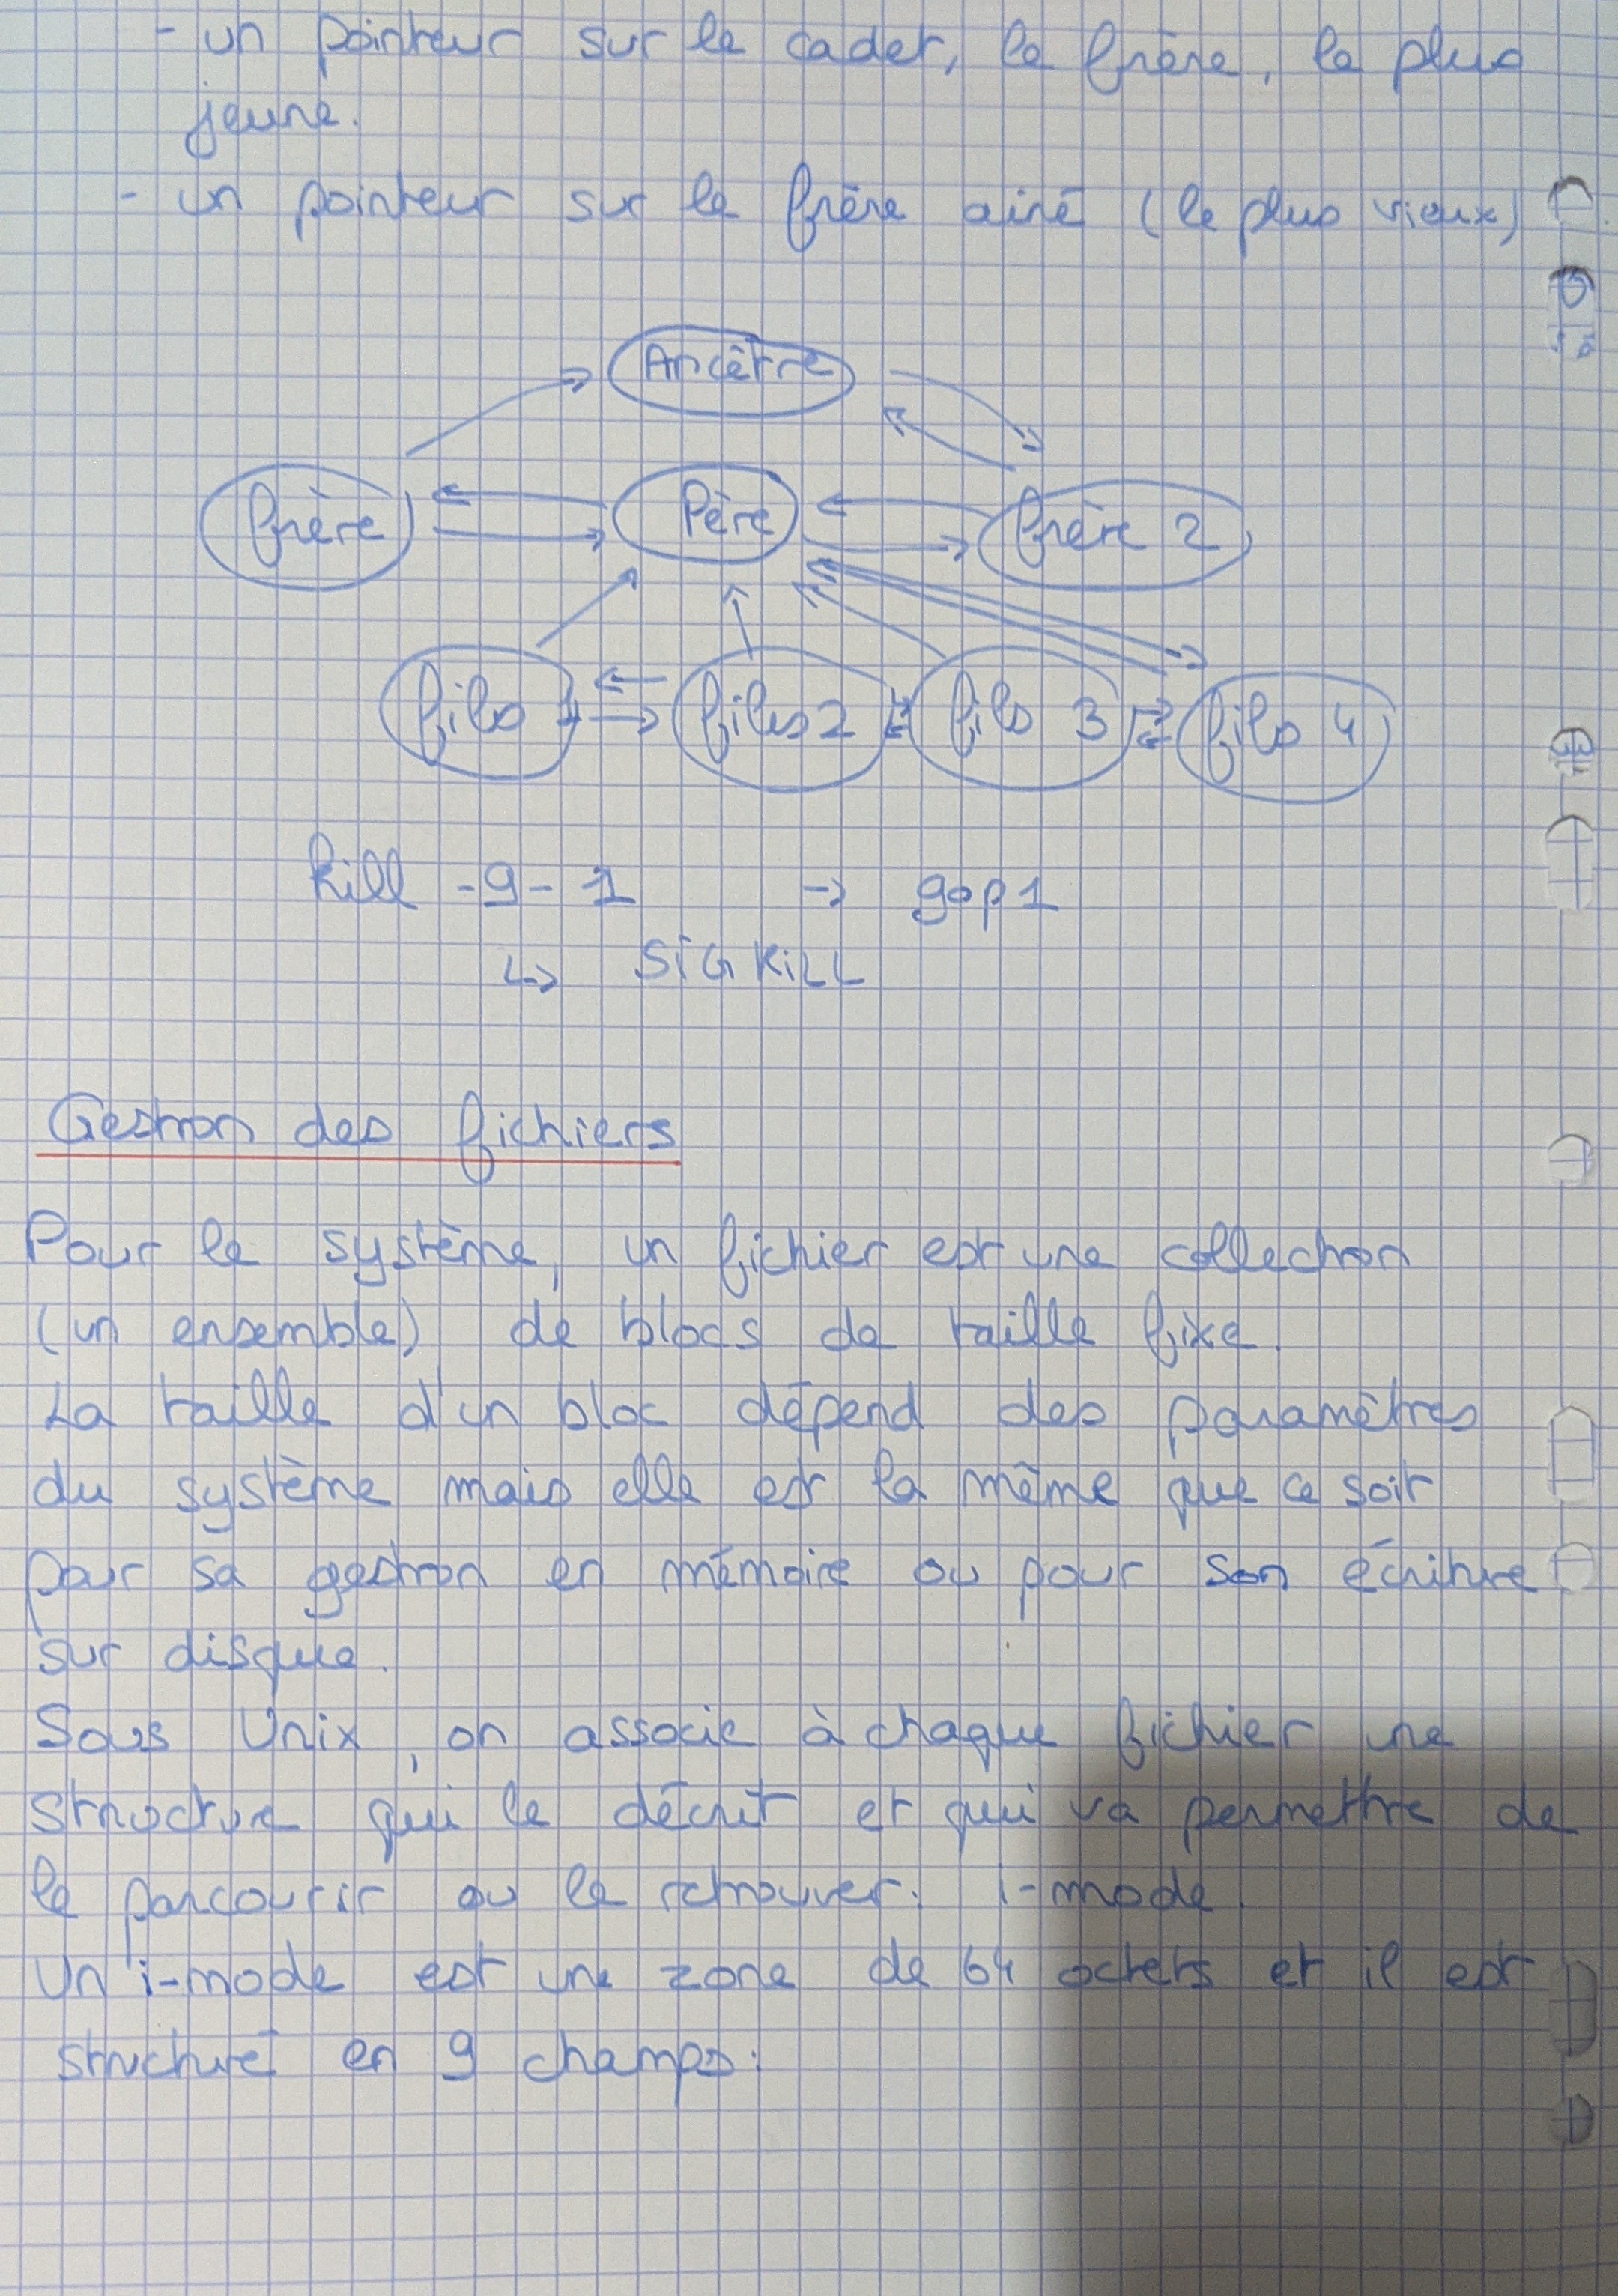 - un pointeur sur le cadet, le frère, le plus
jeune.
- un pointeur sur le frère ainé (le plus vieux)
Ancêtre
frère Père frère 2
fils 1 fils 2 fils 3 fils 4
kill -9 -1 → gop1
↳ SIGKILL
Gestion des fichiers
Pour le système, un fichier est une collection
(un ensemble) de blocs de taille fixe.
La taille d'un bloc dépend des paramètres
du système mais elle est la même que ce soit
pour sa gestion en mémoire ou pour son écriture
sur disque.
Sous Unix, on associe à chaque fichier une
structure qui le décrit et qui va permettre de
le parcourir ou le retrouver: i-mode.
Un i-mode est une zone de 64 octets et il est
structuré en 9 champs: